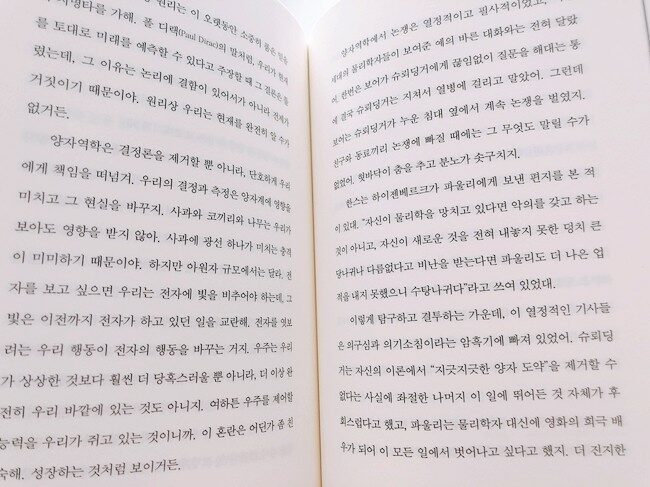 원리는 이 오랫동안 소중히 품은 믿음
치명타를 가해. 폴 디랙(Paul Dirac)의 말처럼, 우리가 현재
를 토대로 미래를 예측할 수 있다고 주장할 때 그 결론은 틀
렸는데, 그 이유는 논리에 결함이 있어서가 아니라 전제가
거짓이기 때문이야. 원리상 우리는 현재를 완전히 알 수가
없거든.
양자역학은 결정론을 제거할 뿐 아니라, 단호하게 우리
에게 책임을 떠넘겨. 우리의 결정과 측정은 양자계에 영향을
미치고 그 현실을 바꾸지. 사과와 코끼리와 나무는 우리가
보아도 영향을 받지 않아. 사과에 광선 하나가 미치는 충격
이 미미하기 때문이야. 하지만 아원자 규모에서는 달라. 전
자를 보고 싶으면 우리는 전자에 빛을 비추어야 하는데, 그
빛은 이전까지 전자가 하고 있던 일을 교란해. 전자를 엿보
려는 우리 행동이 전자의 행동을 바꾸는 거지. 우주는 우리
가 상상한 것보다 훨씬 더 당혹스러울 뿐 아니라, 더 이상 완
전히 우리 바깥에 있는 것도 아니지. 여하튼 우주를 제어할
능력을 우리가 쥐고 있는 것이니까, 이 혼란은 어딘가 좀 친
숙해. 성장하는 것처럼 보이거든.
양자역학에서 논쟁은 열정적이고 필사적이었고,
세대의 물리학자들이 보여준 예의 바른 대화와는 전혀 달랐
어. 한번은 보어가 슈뢰딩거에게 끊임없이 질문을 해대는 통
에 결국 슈뢰딩거는 지쳐서 열병에 걸리고 말았어. 그런데
보어는 슈뢰딩거가 누운 침대 옆에서 계속 논쟁을 벌였지.
친구와 동료끼리 논쟁에 빠질 때에는 그 무엇도 말릴 수가
없었어. 혓바닥이 춤을 추고 분노가 솟구치지.
한스는 하이젠베르크가 파울리에게 보낸 편지를 본 적
이 있대. “자신이 물리학을 망치고 있다면 악의를 갖고 하는
것이 아니고, 자신이 새로운 것을 전혀 내놓지 못한 덩치 큰
당나귀나 다름없다고 비난을 받는다면 파울리도 더 나은 업
적을 내지 못했으니 수탕나귀다”라고 쓰여 있었대.
이렇게 탐구하고 결투하는 가운데, 이 열정적인 기사들
은 의구심과 의기소침이라는 암흑기에 빠져 있었어. 슈뢰딩
거는 자신의 이론에서 “지긋지긋한 양자 도약”을 제거할 수
없다는 사실에 좌절한 나머지 이 일에 뛰어든 것 자체가 후
회스럽다고 했고, 파울리는 물리학자 대신에 영화의 희극 배
우가 되어 이 모든 일에서 벗어나고 싶다고 했지. 더 진지한